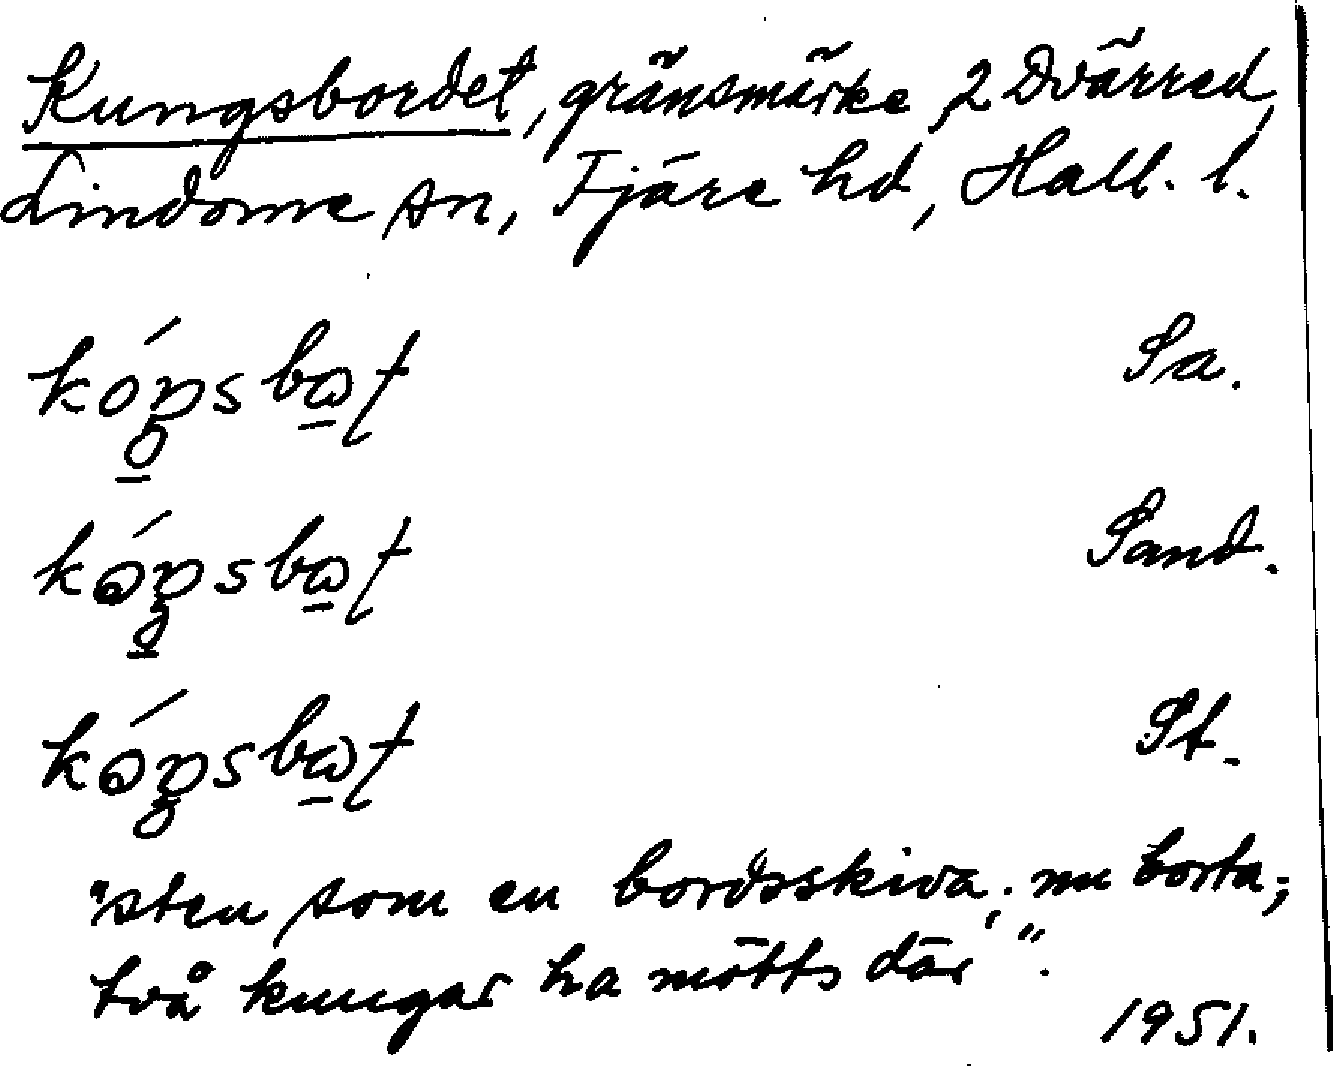 Kungsbordet, gränsmärke, 2 Dvärred,
Lindome sn, Fjäre hd, Hall. l.
Sa.
Sand.
St.
"sten som en bordsskiva; nu borta;
två kungar ha mötts där".
1951.